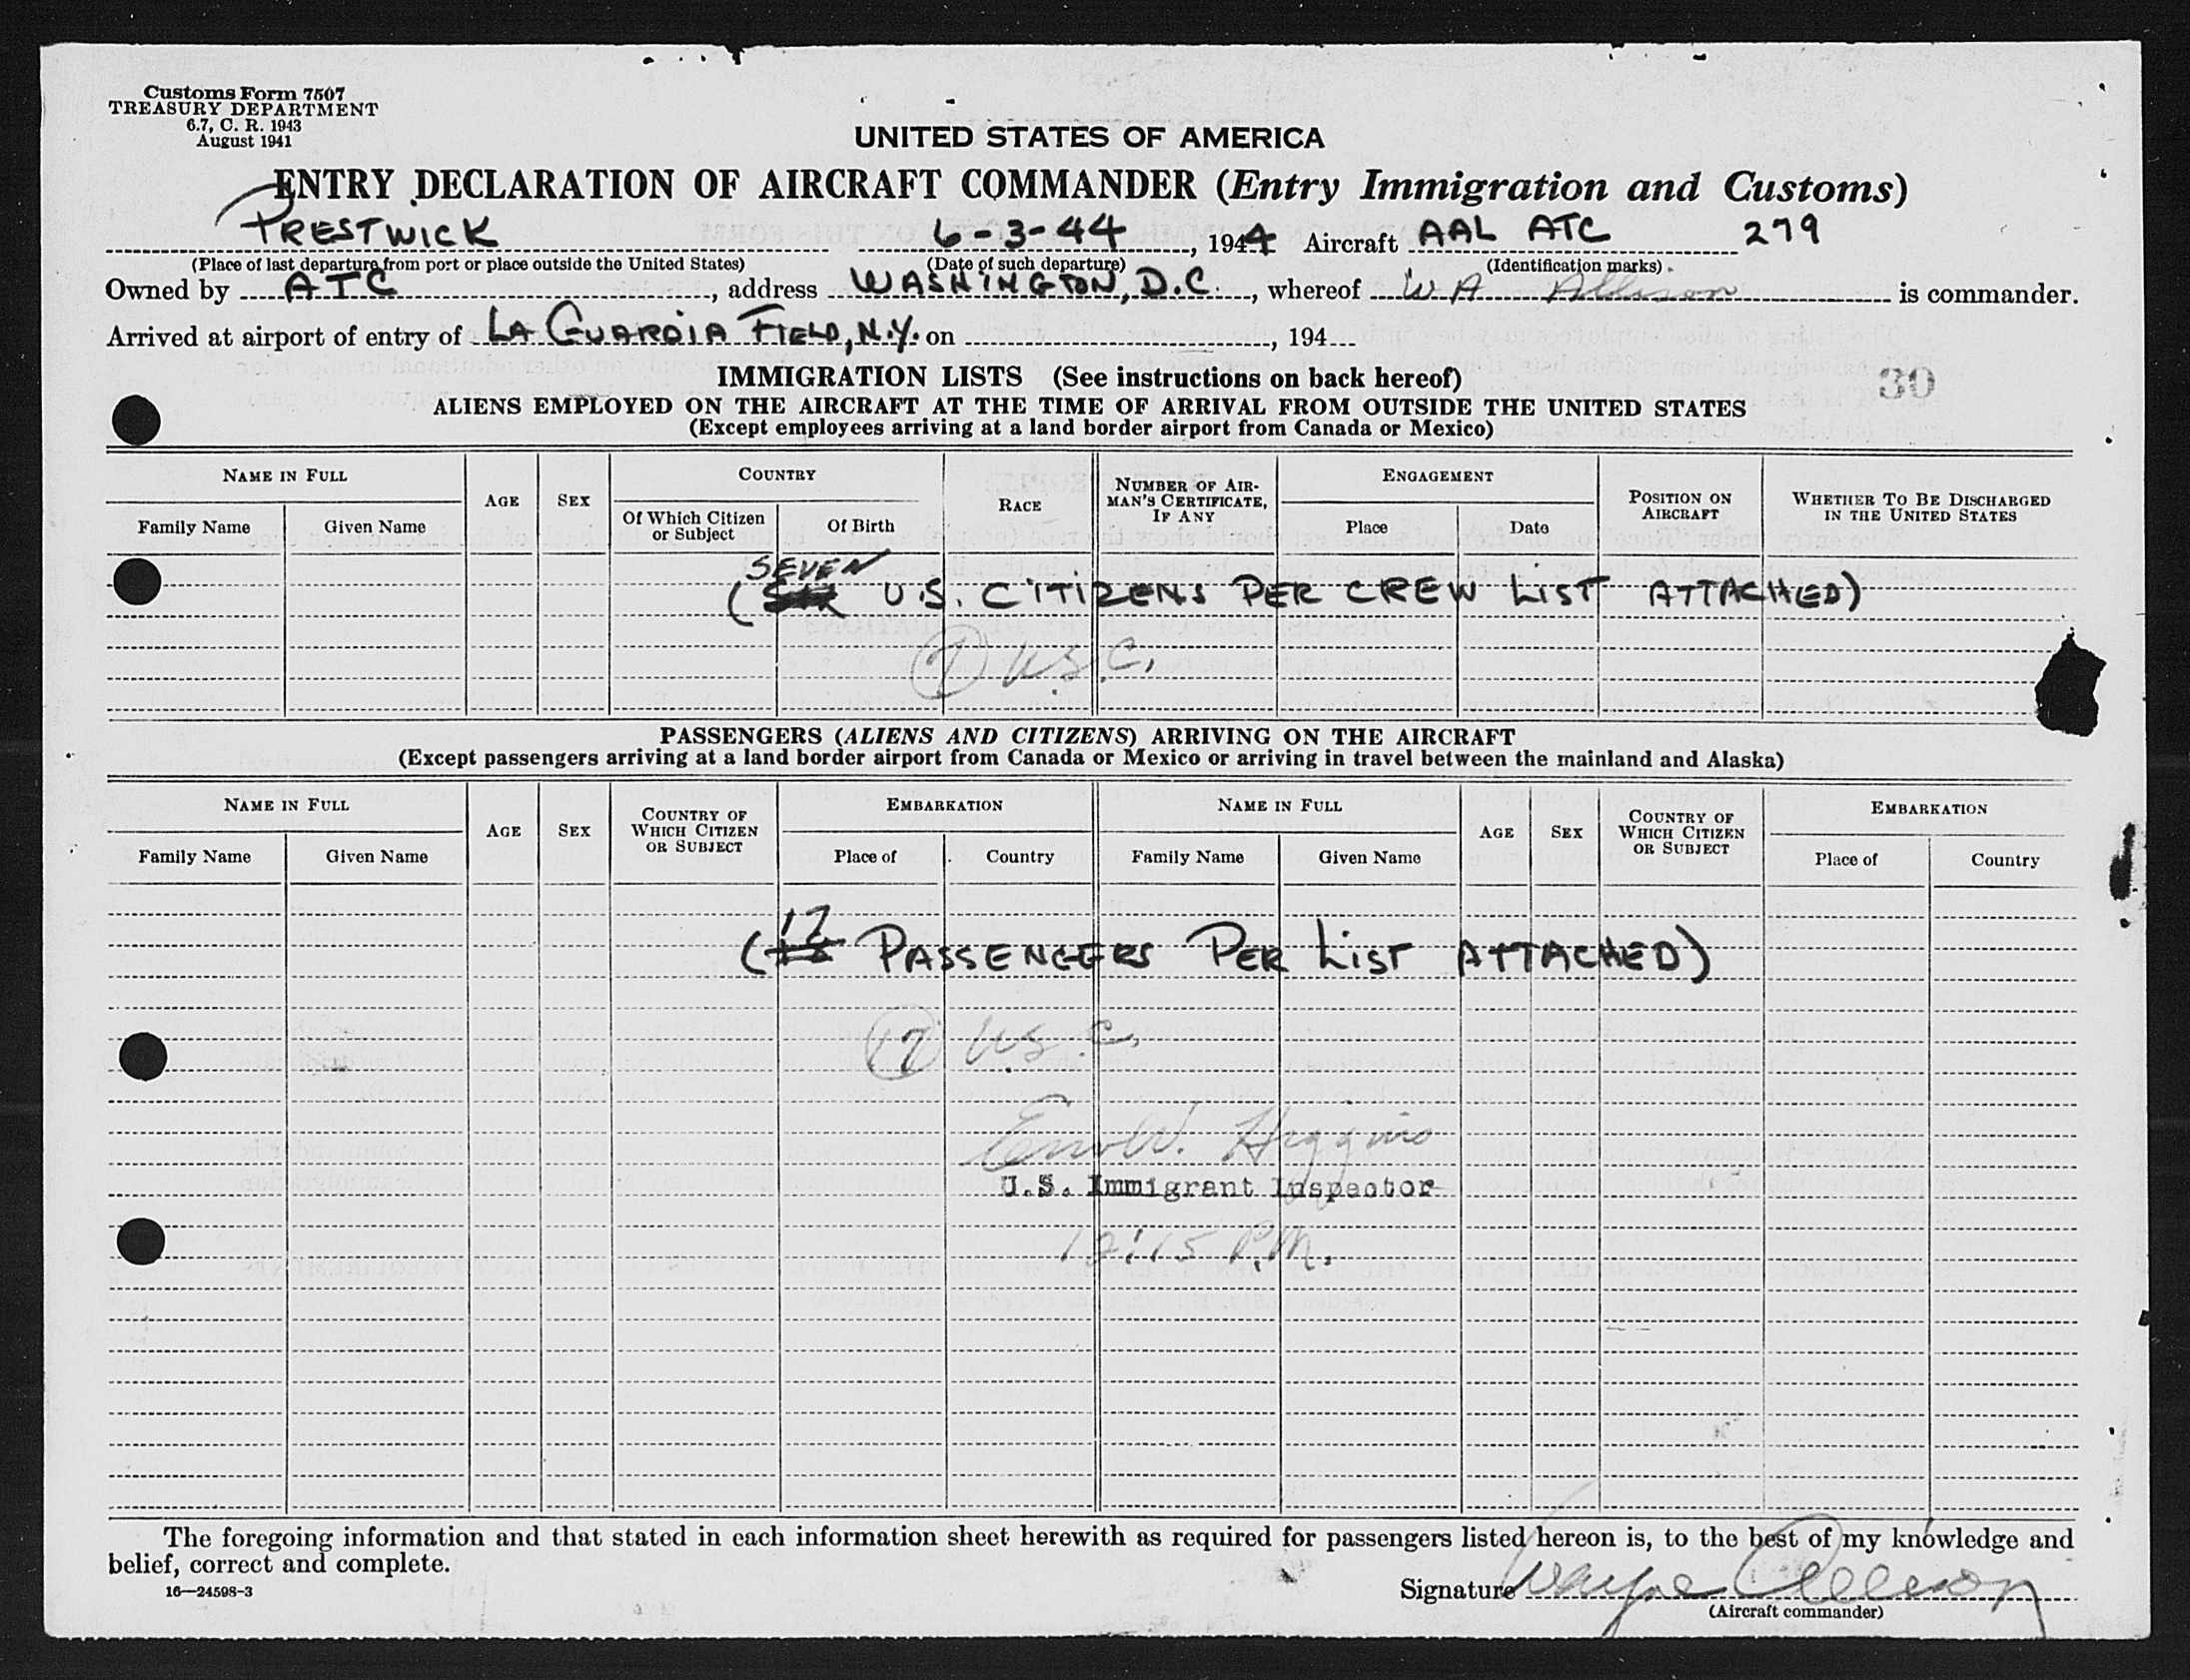 Customs Form 7507
TREASURY DEPARTMENT
6.7, C. R. 1943
August 1941
UNITED STATES OF AMERICA
ENTRY DECLARATION OF AIRCRAFT COMMANDER (Entry Immigration and Customs)
PRESTWICK 6-3-44, 1944 Aircraft AAL ATC 279
(Place of last departure from port or place outside the United States) (Date of such departure) (Identification marks)
Owned by ATC, address WASHINGTON, D.C., whereof W A Allison is commander.
Arrived at airport of entry of LA GUARDIA FIELD, N.Y. on , 194
IMMIGRATION LISTS (See instructions on back hereof)
30
ALIENS EMPLOYED ON THE AIRCRAFT AT THE TIME OF ARRIVAL FROM OUTSIDE THE UNITED STATES
(Except employees arriving at a land border airport from Canada or Mexico)
NAME IN FULL AGE SEX COUNTRY RACE NUMBER OF AIRMAN'S CERTIFICATE, IF ANY ENGAGEMENT POSITION ON AIRCRAFT WHETHER TO BE DISCHARGED IN THE UNITED STATES
Family Name Given Name Of Which Citizen or Subject Of Birth Place Date
SEVEN
(U.S. CITIZENS PER CREW LIST ATTACHED)
7 U.S.C.
PASSENGERS (ALIENS AND CITIZENS) ARRIVING ON THE AIRCRAFT
(Except passengers arriving at a land border airport from Canada or Mexico or arriving in travel between the mainland and Alaska)
NAME IN FULL AGE SEX COUNTRY OF WHICH CITIZEN OR SUBJECT EMBARKATION NAME IN FULL AGE SEX COUNTRY OF WHICH CITIZEN OR SUBJECT EMBARKATION
Family Name Given Name Place of Country Family Name Given Name Place of Country
17
(PASSENGERS PER LIST ATTACHED)
17 U.S.C.
Higgins
U.S. Immigrant Inspector
12:15 P.M.
The foregoing information and that stated in each information sheet herewith as required for passengers listed hereon is, to the best of my knowledge and
belief, correct and complete.
16—24598-3
Signature Wayne Allison
(Aircraft commander)